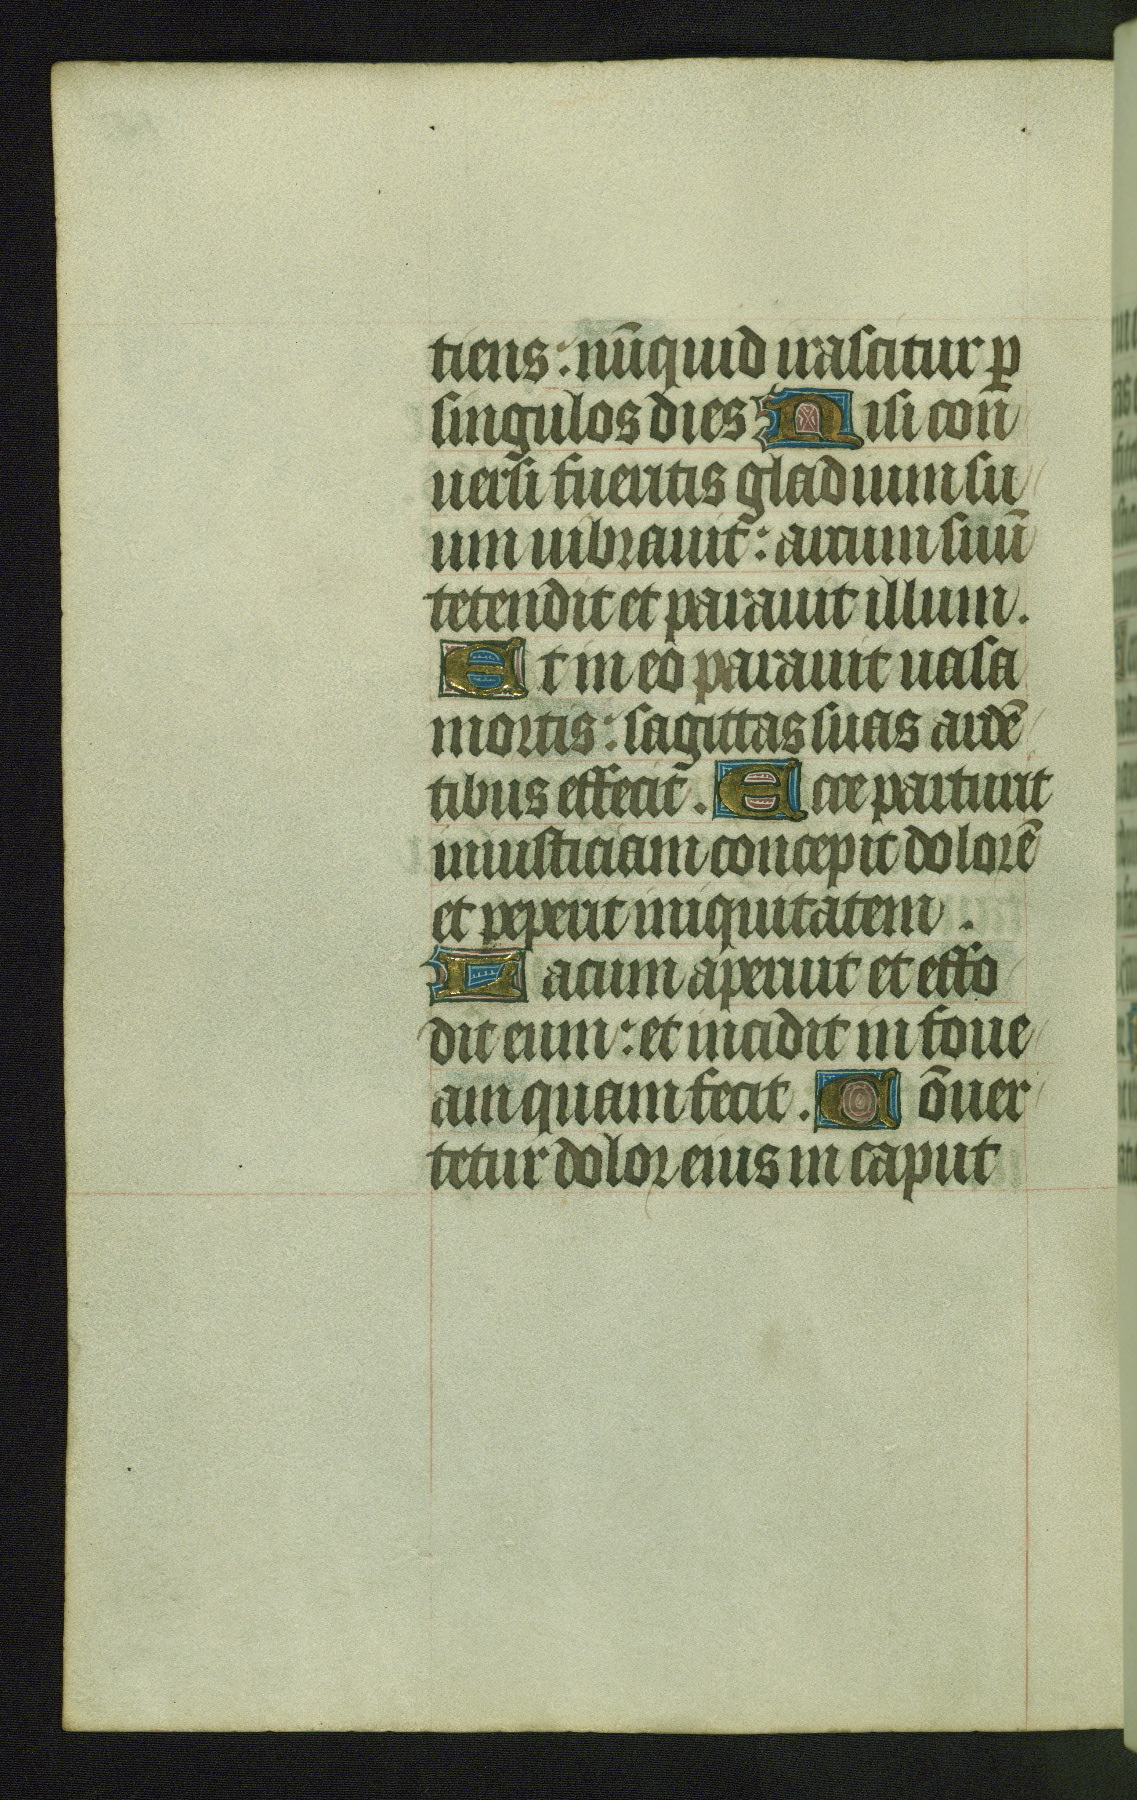 tiens: nūquid irascitur ꝑ
singulos dies Nisi con
uersi fueritis gladium su
um uibrauit: arcum suū
tetendit et parauit illum.
Et in eo parauit uasa
mortis: sagittas suas ardē
tibus effecit. Ecce parturit
iniusticiam concepit dolorē
et peperit iniquitatem.
Lacum aperuit et effo
dit eum: et incidit in foue
am quam fecit. Cōuer
tetur dolor eius in caput